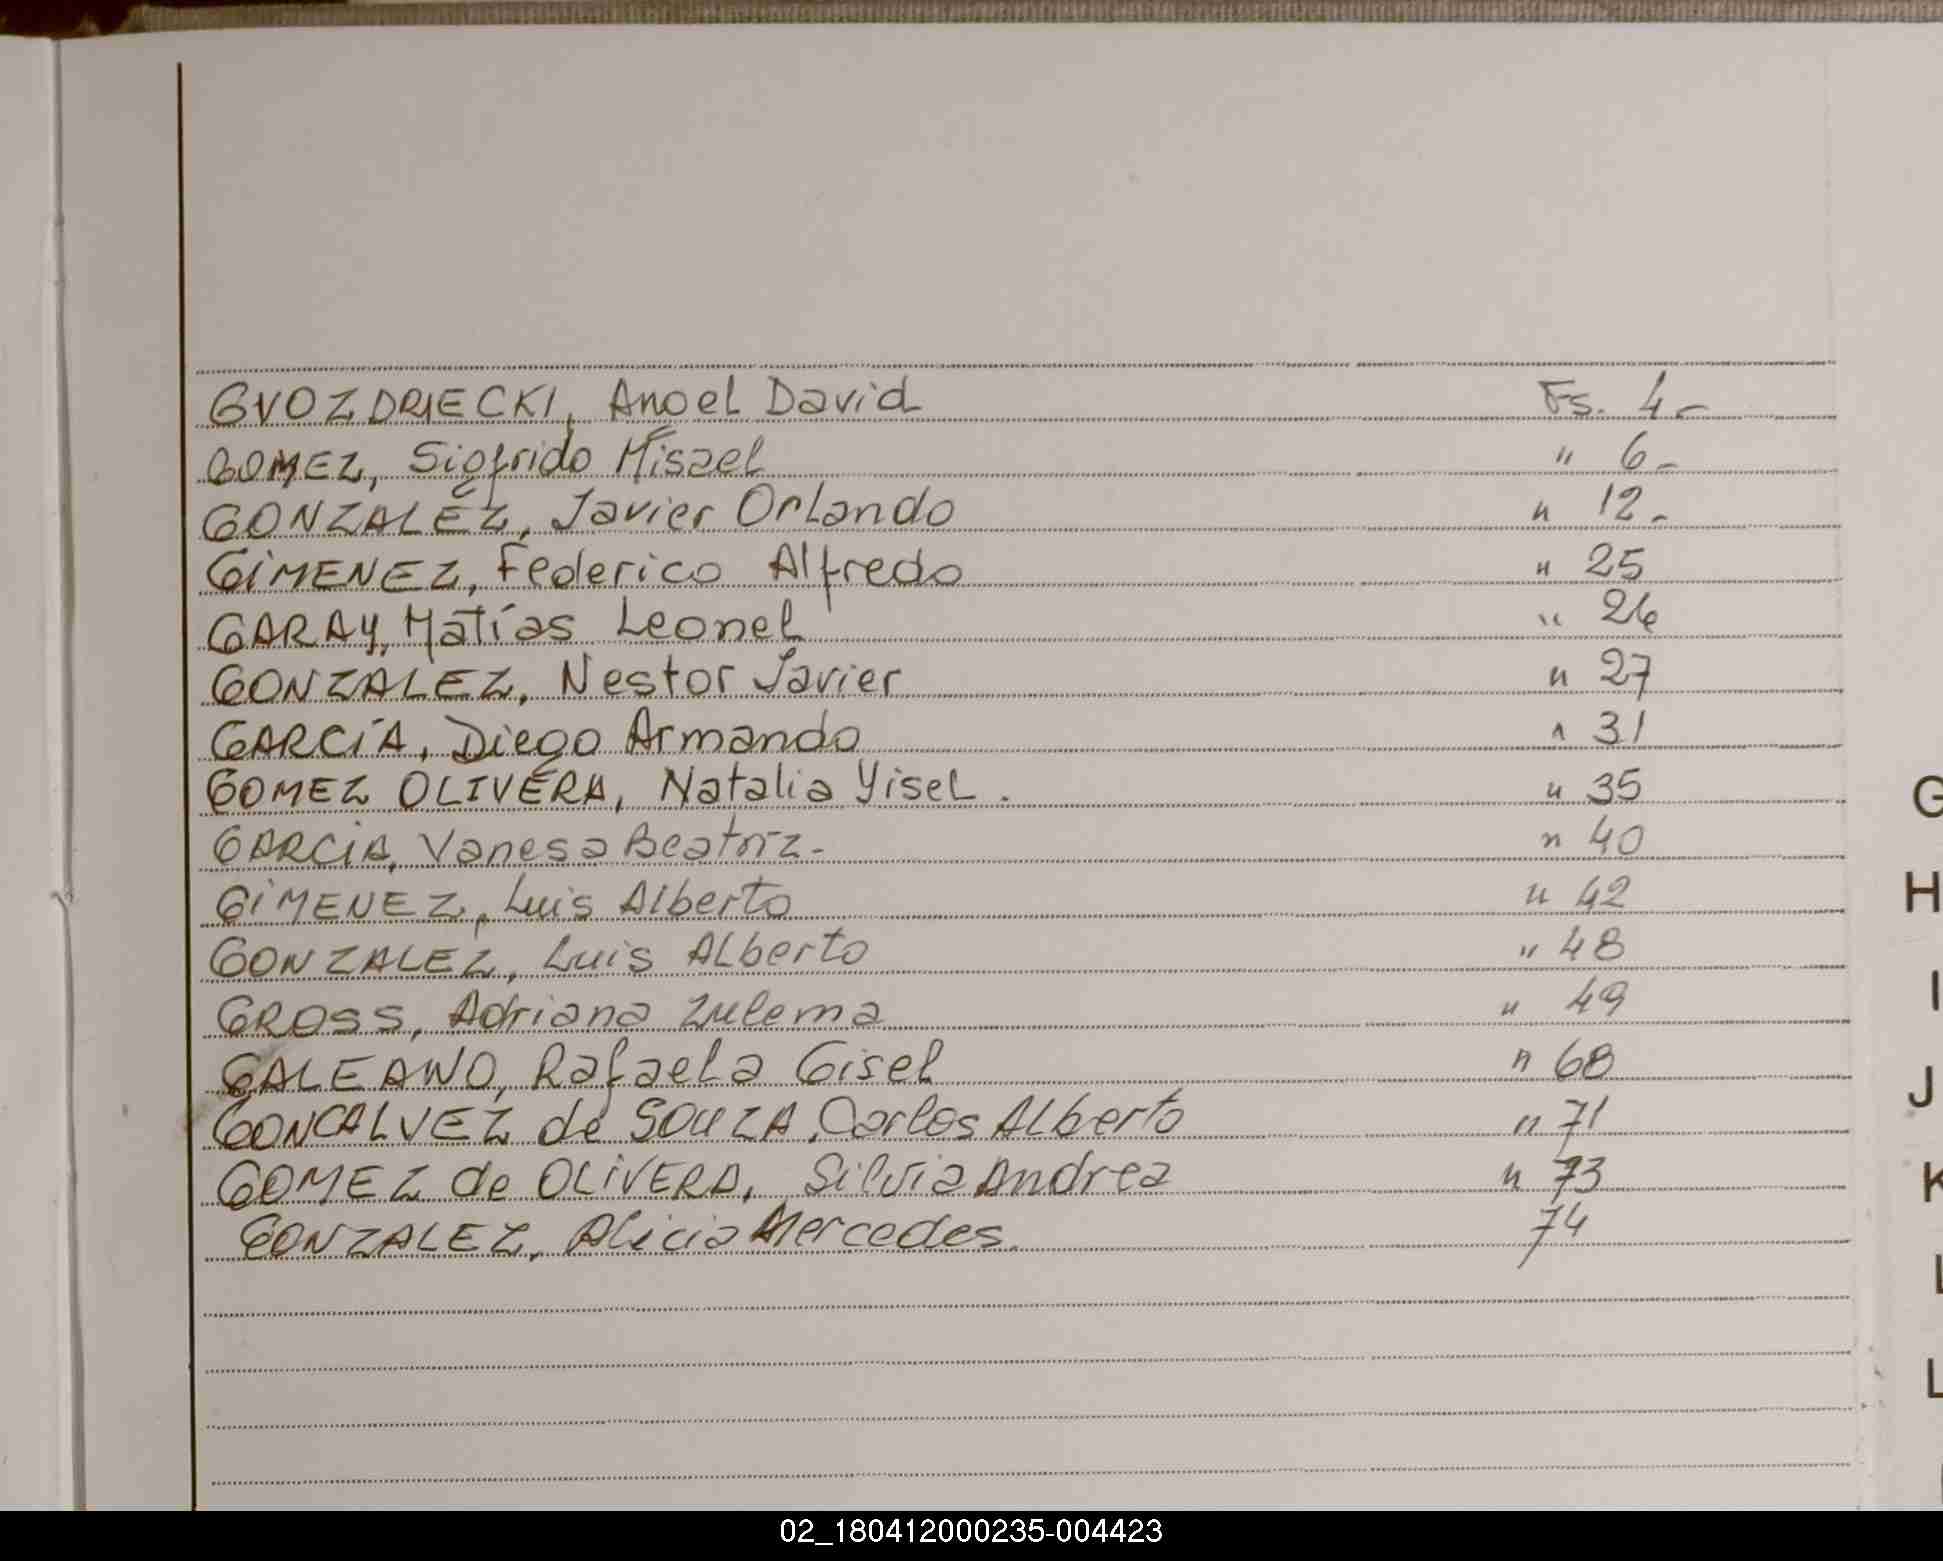 GVOZDRIECKI, Angel David Fs. 4-
GOMEZ, Sigfrido Misael " 6-
GONZALEZ, Javier Orlando " 12-
GIMENEZ, Federico Alfredo " 25
GARAY, Matías Leonel " 26
GONZALEZ, Nestor Javier " 27
GARCÍA, Diego Armando " 31
GOMEZ OLIVERA, Natalia Yisel. " 35
GARCIA, Vanesa Beatriz- " 40
GIMENEZ, Luis Alberto " 42
GONZALEZ, Luis Alberto " 48
GROSS, Adriana Zulema " 49
GALEANO, Rafaela Gisel " 68
GONCALVEZ de SOUZA, Carlos Alberto " 71
GOMEZ de OLIVERA, Silvia Andrea " 73
GONZALEZ, Alicia Mercedes. 74
G
H
I
J
K
L
L
02_180412000235-004423